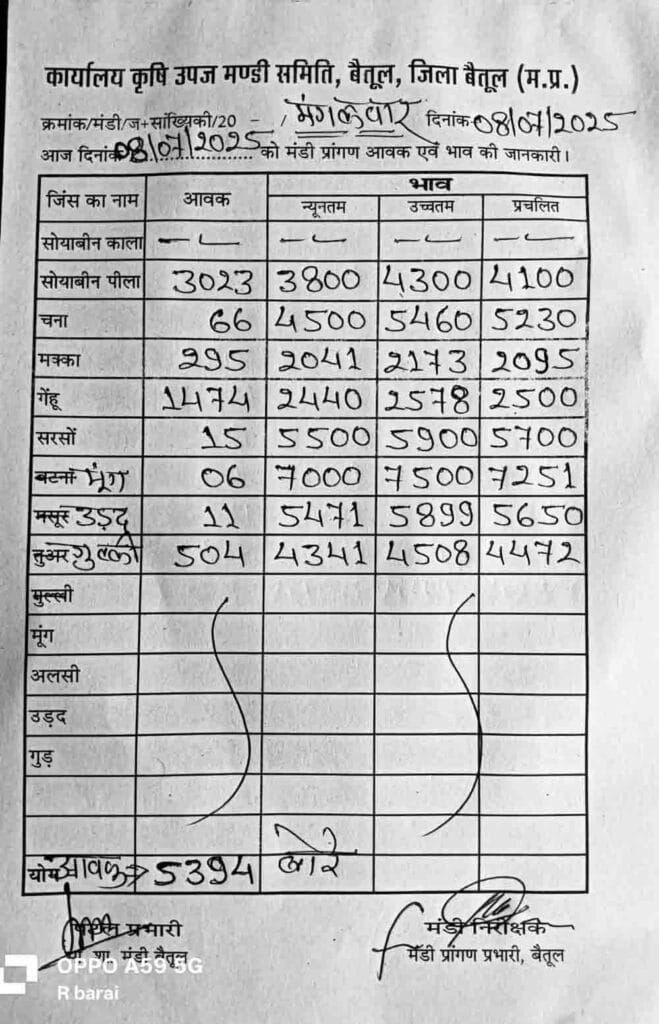 कार्यालय कृषि उपज मण्डी समिति, बैतूल, जिला बैतूल (म.प्र.)
क्रमांक/मंडी/ज+सांख्यिकी/20 - / मंगलवार दिनांक 08/07/2025
आज दिनांक 08/07/2025 को मंडी प्रांगण आवक एवं भाव की जानकारी।
जिंस का नाम आवक भाव
न्यूनतम उच्चतम प्रचलित
सोयाबीन काला -- -- -- --
सोयाबीन पीला 3023 3800 4300 4100
चना 66 4500 5460 5230
मक्का 295 2041 2173 2095
गेंहू 1474 2440 2578 2500
सरसों 15 5500 5900 5700
बटना मूंग 06 7000 7500 7251
मसूर उड़द 11 5471 5899 5650
तुअर गुल्ली 504 4341 4508 4472
गुल्ली
मूंग
अलसी
उड़द
गुड़
योग आवक → 5394 बोरे
प्रभारी मंडी निरीक्षक
मंडी बैतूल मंडी प्रांगण प्रभारी, बैतूल
OPPO A59 5G
R barai